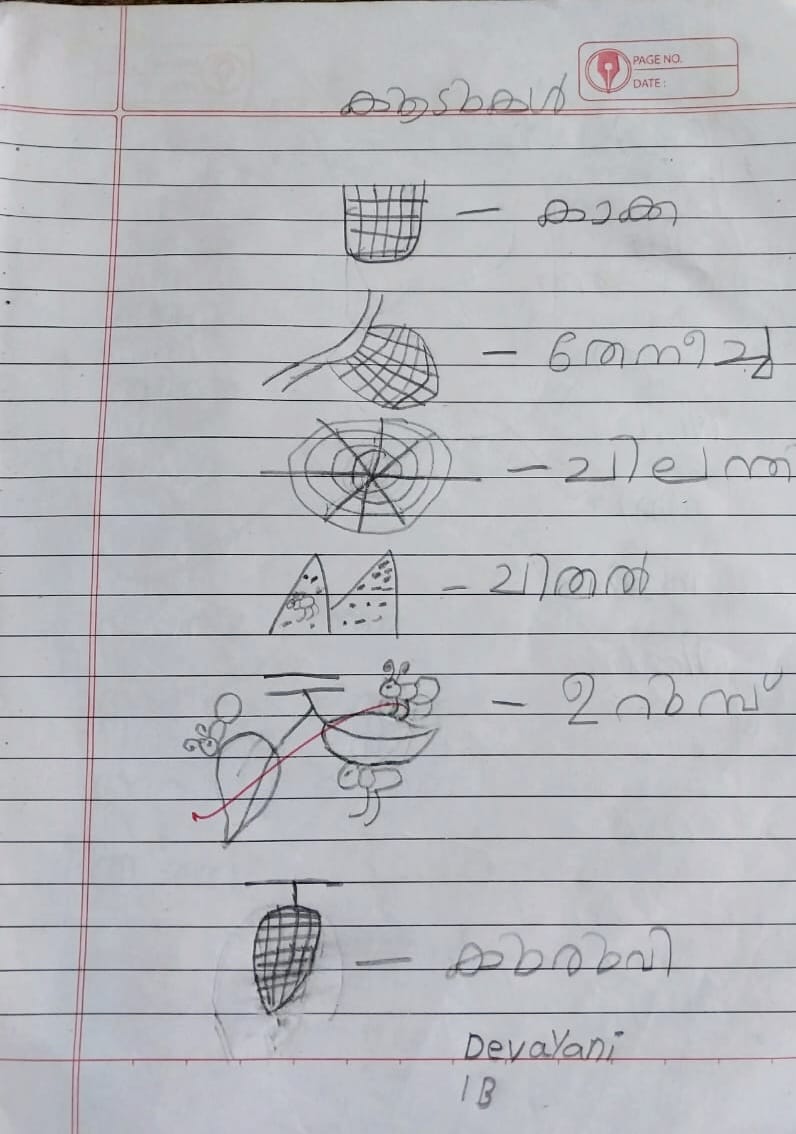 PAGE NO.
DATE:
കൂടുകൾ
കാക്ക
തേനീച്ച
ചിലന്തി
ചിതൽ
ഉറുമ്പ്
കുരുവി
Devayani
1B